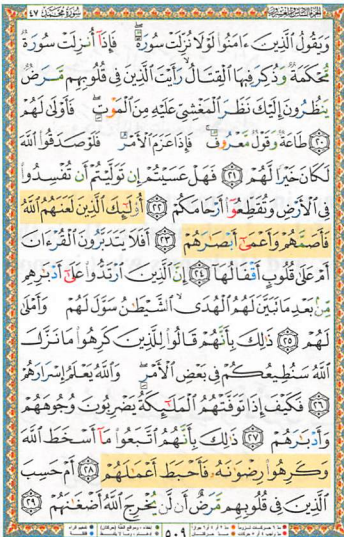 سورة محمد ٤٧
الجزء السادس والعشرون
وَيَقُولُ الَّذِينَ ءَامَنُوا لَوْلَا نُزِّلَتْ سُورَةٌ ۖ فَإِذَا أُنزِلَتْ سُورَةٌ
مُّحْكَمَةٌ وَذُكِرَ فِيهَا الْقِتَالُ ۙ رَأَيْتَ الَّذِينَ فِي قُلُوبِهِم مَّرَضٌ
يَنظُرُونَ إِلَيْكَ نَظَرَ الْمَغْشِيِّ عَلَيْهِ مِنَ الْمَوْتِ ۖ فَأَوْلَىٰ لَهُمْ
٢٠ طَاعَةٌ وَقَوْلٌ مَّعْرُوفٌ ۚ فَإِذَا عَزَمَ الْأَمْرُ فَلَوْ صَدَقُوا اللَّهَ
لَكَانَ خَيْرًا لَّهُمْ ٢١ فَهَلْ عَسَيْتُمْ إِن تَوَلَّيْتُمْ أَن تُفْسِدُوا
فِي الْأَرْضِ وَتُقَطِّعُوا أَرْحَامَكُمْ ٢٢ أُولَٰئِكَ الَّذِينَ لَعَنَهُمُ اللَّهُ
فَأَصَمَّهُمْ وَأَعْمَىٰ أَبْصَارَهُمْ ٢٣ أَفَلَا يَتَدَبَّرُونَ الْقُرْءَانَ
أَمْ عَلَىٰ قُلُوبٍ أَقْفَالُهَا ٢٤ إِنَّ الَّذِينَ ارْتَدُّوا عَلَىٰ أَدْبَارِهِم
مِّن بَعْدِ مَا تَبَيَّنَ لَهُمُ الْهُدَى ۙ الشَّيْطَانُ سَوَّلَ لَهُمْ وَأَمْلَىٰ
لَهُمْ ٢٥ ذَٰلِكَ بِأَنَّهُمْ قَالُوا لِلَّذِينَ كَرِهُوا مَا نَزَّلَ
اللَّهُ سَنُطِيعُكُمْ فِي بَعْضِ الْأَمْرِ ۖ وَاللَّهُ يَعْلَمُ إِسْرَارَهُمْ
٢٦ فَكَيْفَ إِذَا تَوَفَّتْهُمُ الْمَلَائِكَةُ يَضْرِبُونَ وُجُوهَهُمْ
وَأَدْبَارَهُمْ ٢٧ ذَٰلِكَ بِأَنَّهُمُ اتَّبَعُوا مَا أَسْخَطَ اللَّهَ
وَكَرِهُوا رِضْوَانَهُ فَأَحْبَطَ أَعْمَالَهُمْ ٢٨ أَمْ حَسِبَ
الَّذِينَ فِي قُلُوبِهِم مَّرَضٌ أَن لَّن يُخْرِجَ اللَّهُ أَضْغَانَهُمْ ٢٩
٥٠٩